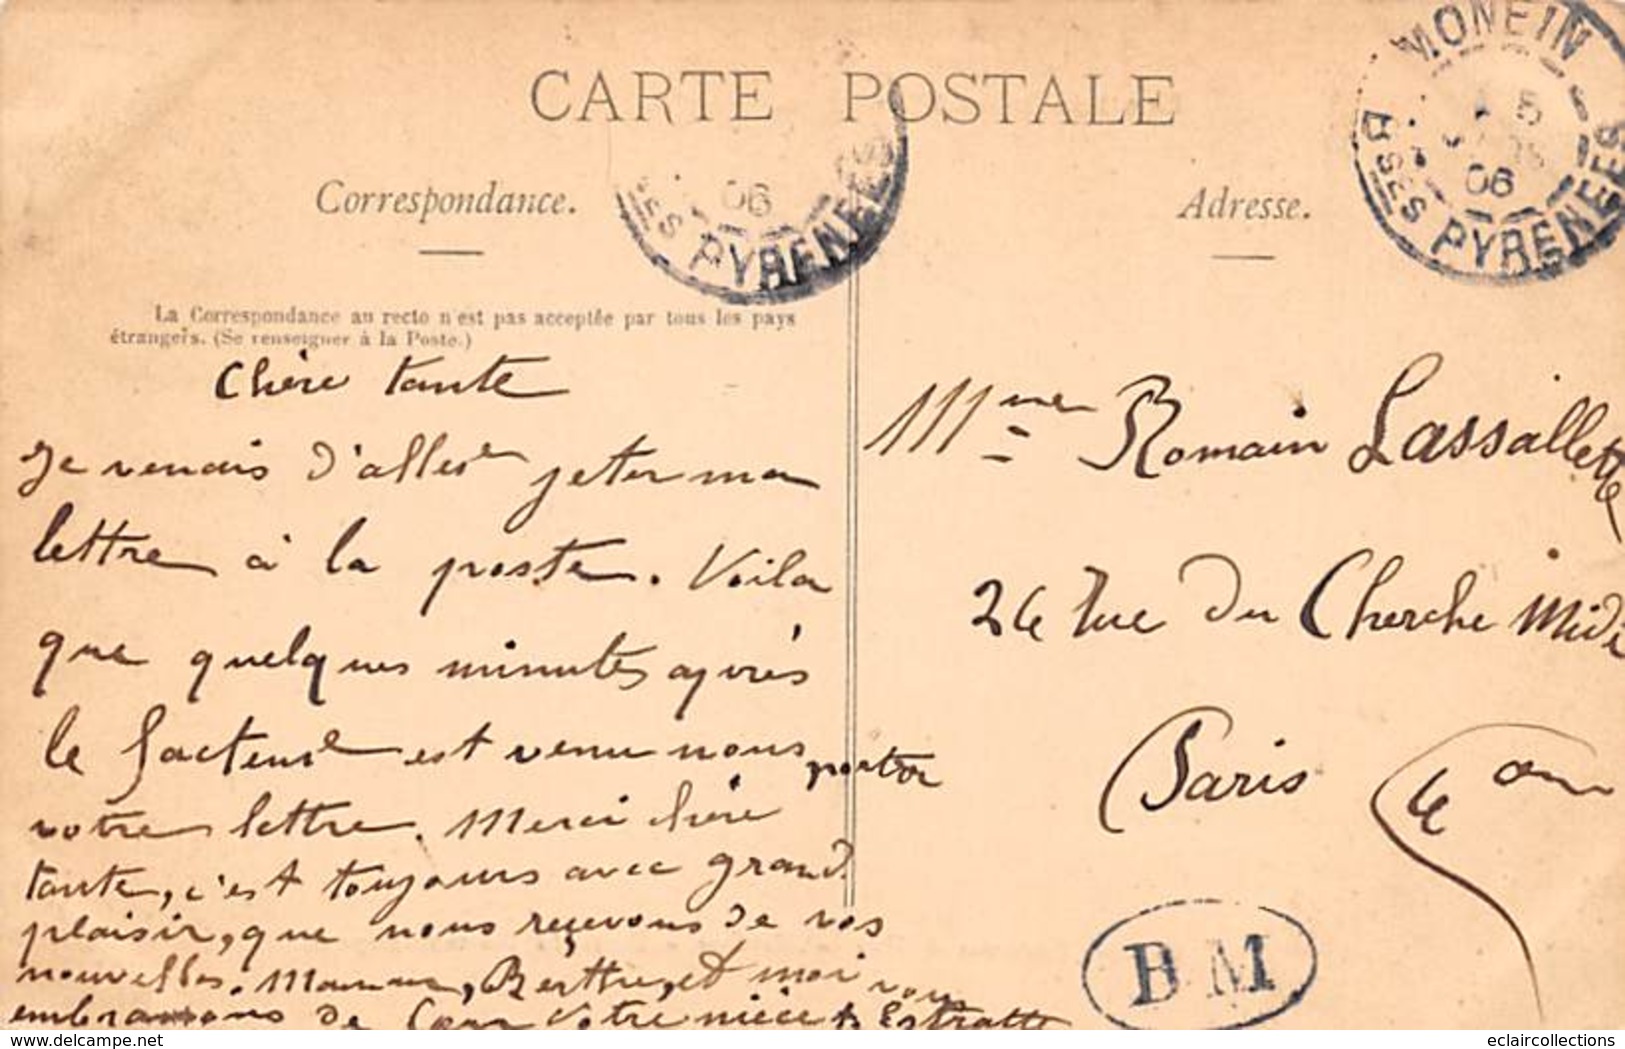 CARTE POSTALE
MONEIN
06
BSES PYRENEES
06
SES PYRENEES
Correspondance.
Adresse.
La Correspondance au recto n'est pas acceptée par tous les pays
étrangers. (Se renseigner à la Poste.)
Chère tante
Je venais d'aller jeter ma
lettre à la poste. Voila
que quelques minutes après
le facteur est venu nous porter
votre lettre. Merci chère
tante, c'est toujours avec grand
plaisir, que nous reçevons de vos
nouvelles. Maman, Berthe, et moi vous
embrassons de Cœur Votre nièce
Mme Romain Lassallette
26 rue du Cherche Midi
Paris
BM
My-WW2.com
eclaircollections